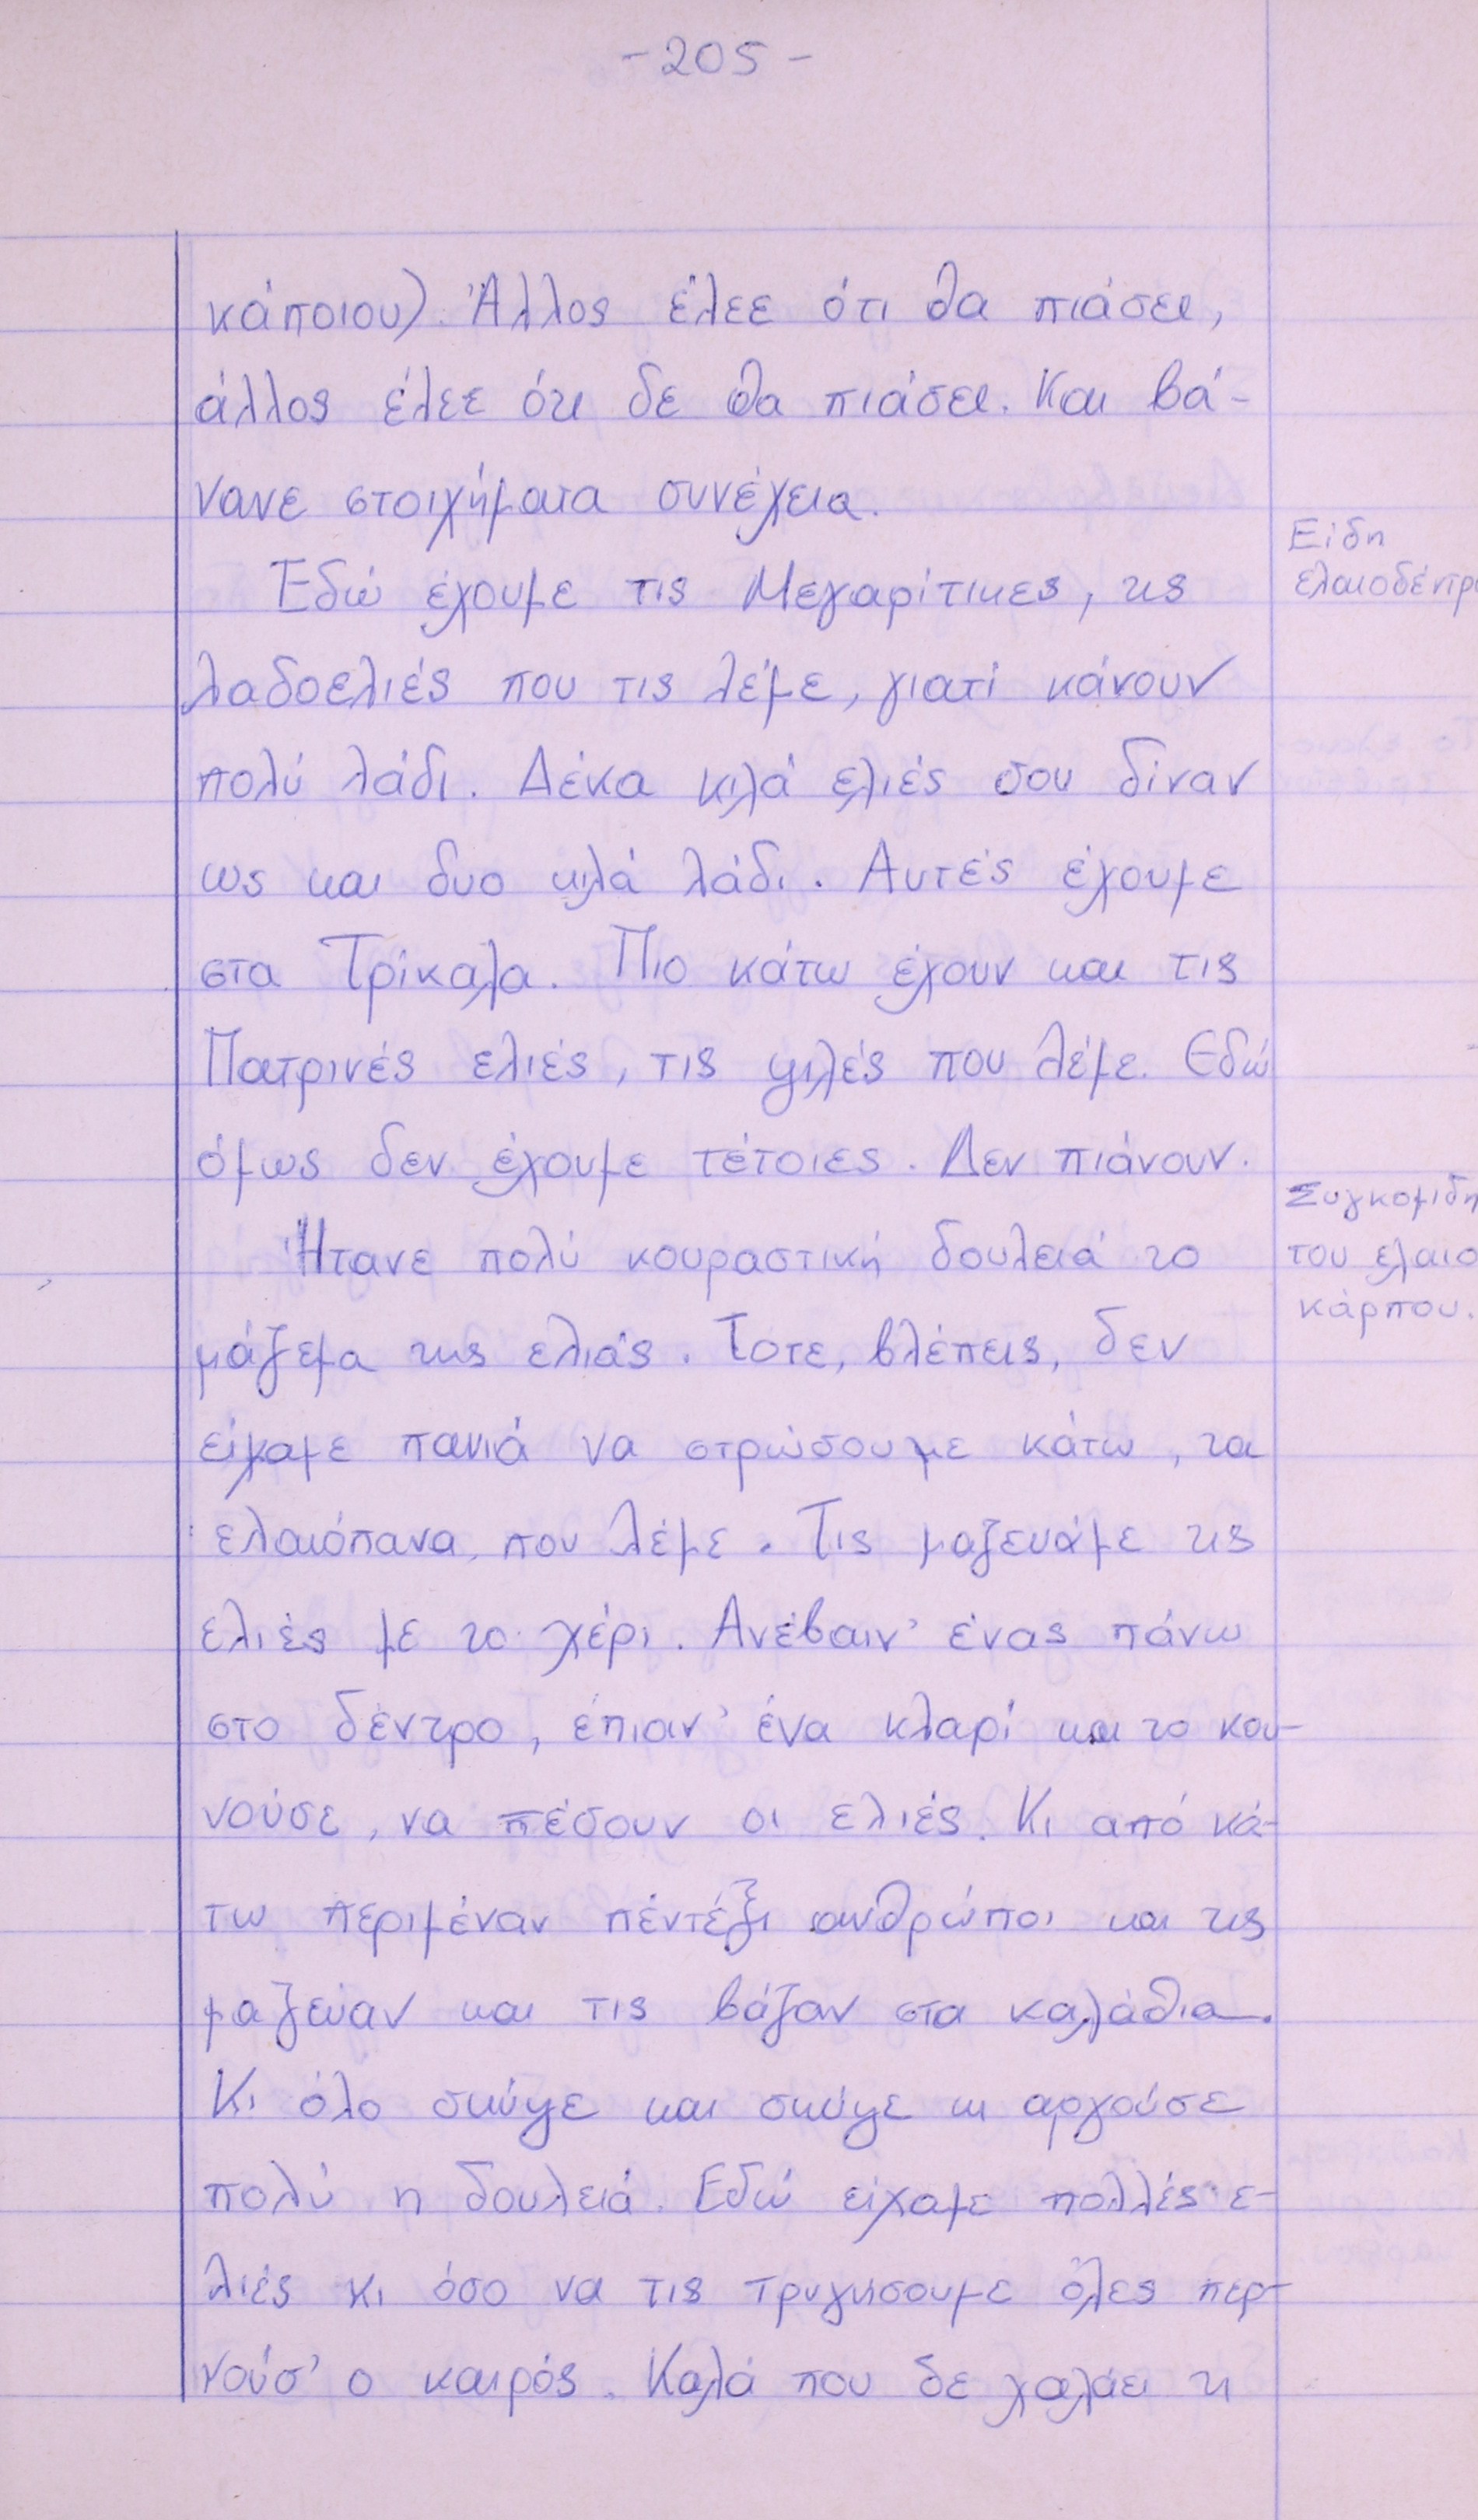 -205-
κάποιου). Άλλος έλεε ότι θα πιάσει,
άλλος έλεε ότι δε θα πιάσει. Και βά-
νανε στοιχήματα συνέχεια.
Είδη
ελαιοδέντρ
Εδώ έχουμε τις Μεγαρίτικες, τις
λαδοελιές που τις λέμε, γιατί κάνουν
πολύ λάδι. Δέκα κιλά ελιές σου δίναν
ως και δυο κιλά λάδι. Αυτές έχουμε
στα Τρίκαλα. Πιο κάτω έχουν και τις
Πατρινές ελιές, τις ψιλές που λέμε. Εδώ
όμως δεν έχουμε τέτοιες. Δεν πιάνουν.
Συγκομιδη
του ελαιο
κάρπου.
Ήτανε πολύ κουραστική δουλειά το
μάζεμα της ελιάς. Τότε, βλέπεις, δεν
είχαμε πανιά να στρώσουμε κάτω, τα
ελαιόπανα που λέμε. Τις μαζευάμε τις
ελιές με το χέρι. Ανέβαιν' ένας πάνω
στο δέντρο, έπιαν' ένα κλαρί και το κου-
νούσε, να πέσουν οι ελιές. Κι από κά-
τω περιμέναν πέντέξι ανθρώποι και τις
μαζεύαν και τις βάζαν στα καλάθια.
Κι όλο σκύψε και σκύψε κι αργούσε
πολύ η δουλειά. Εδώ είχαμε πολλές ε-
λιές κι όσο να τις τρυγήσουμε όλες περ-
νούσ' ο καιρός. Καλά που δε χαλάει η